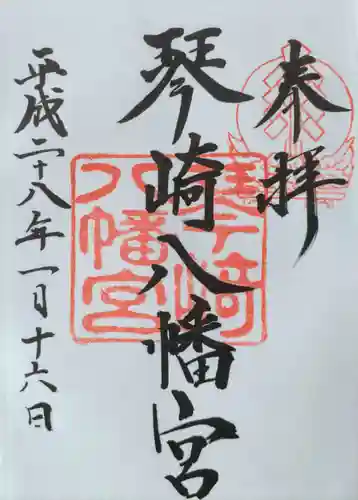 奉拝
琴崎八幡宮
琴崎
八幡宮
平成二十八年一月十六日